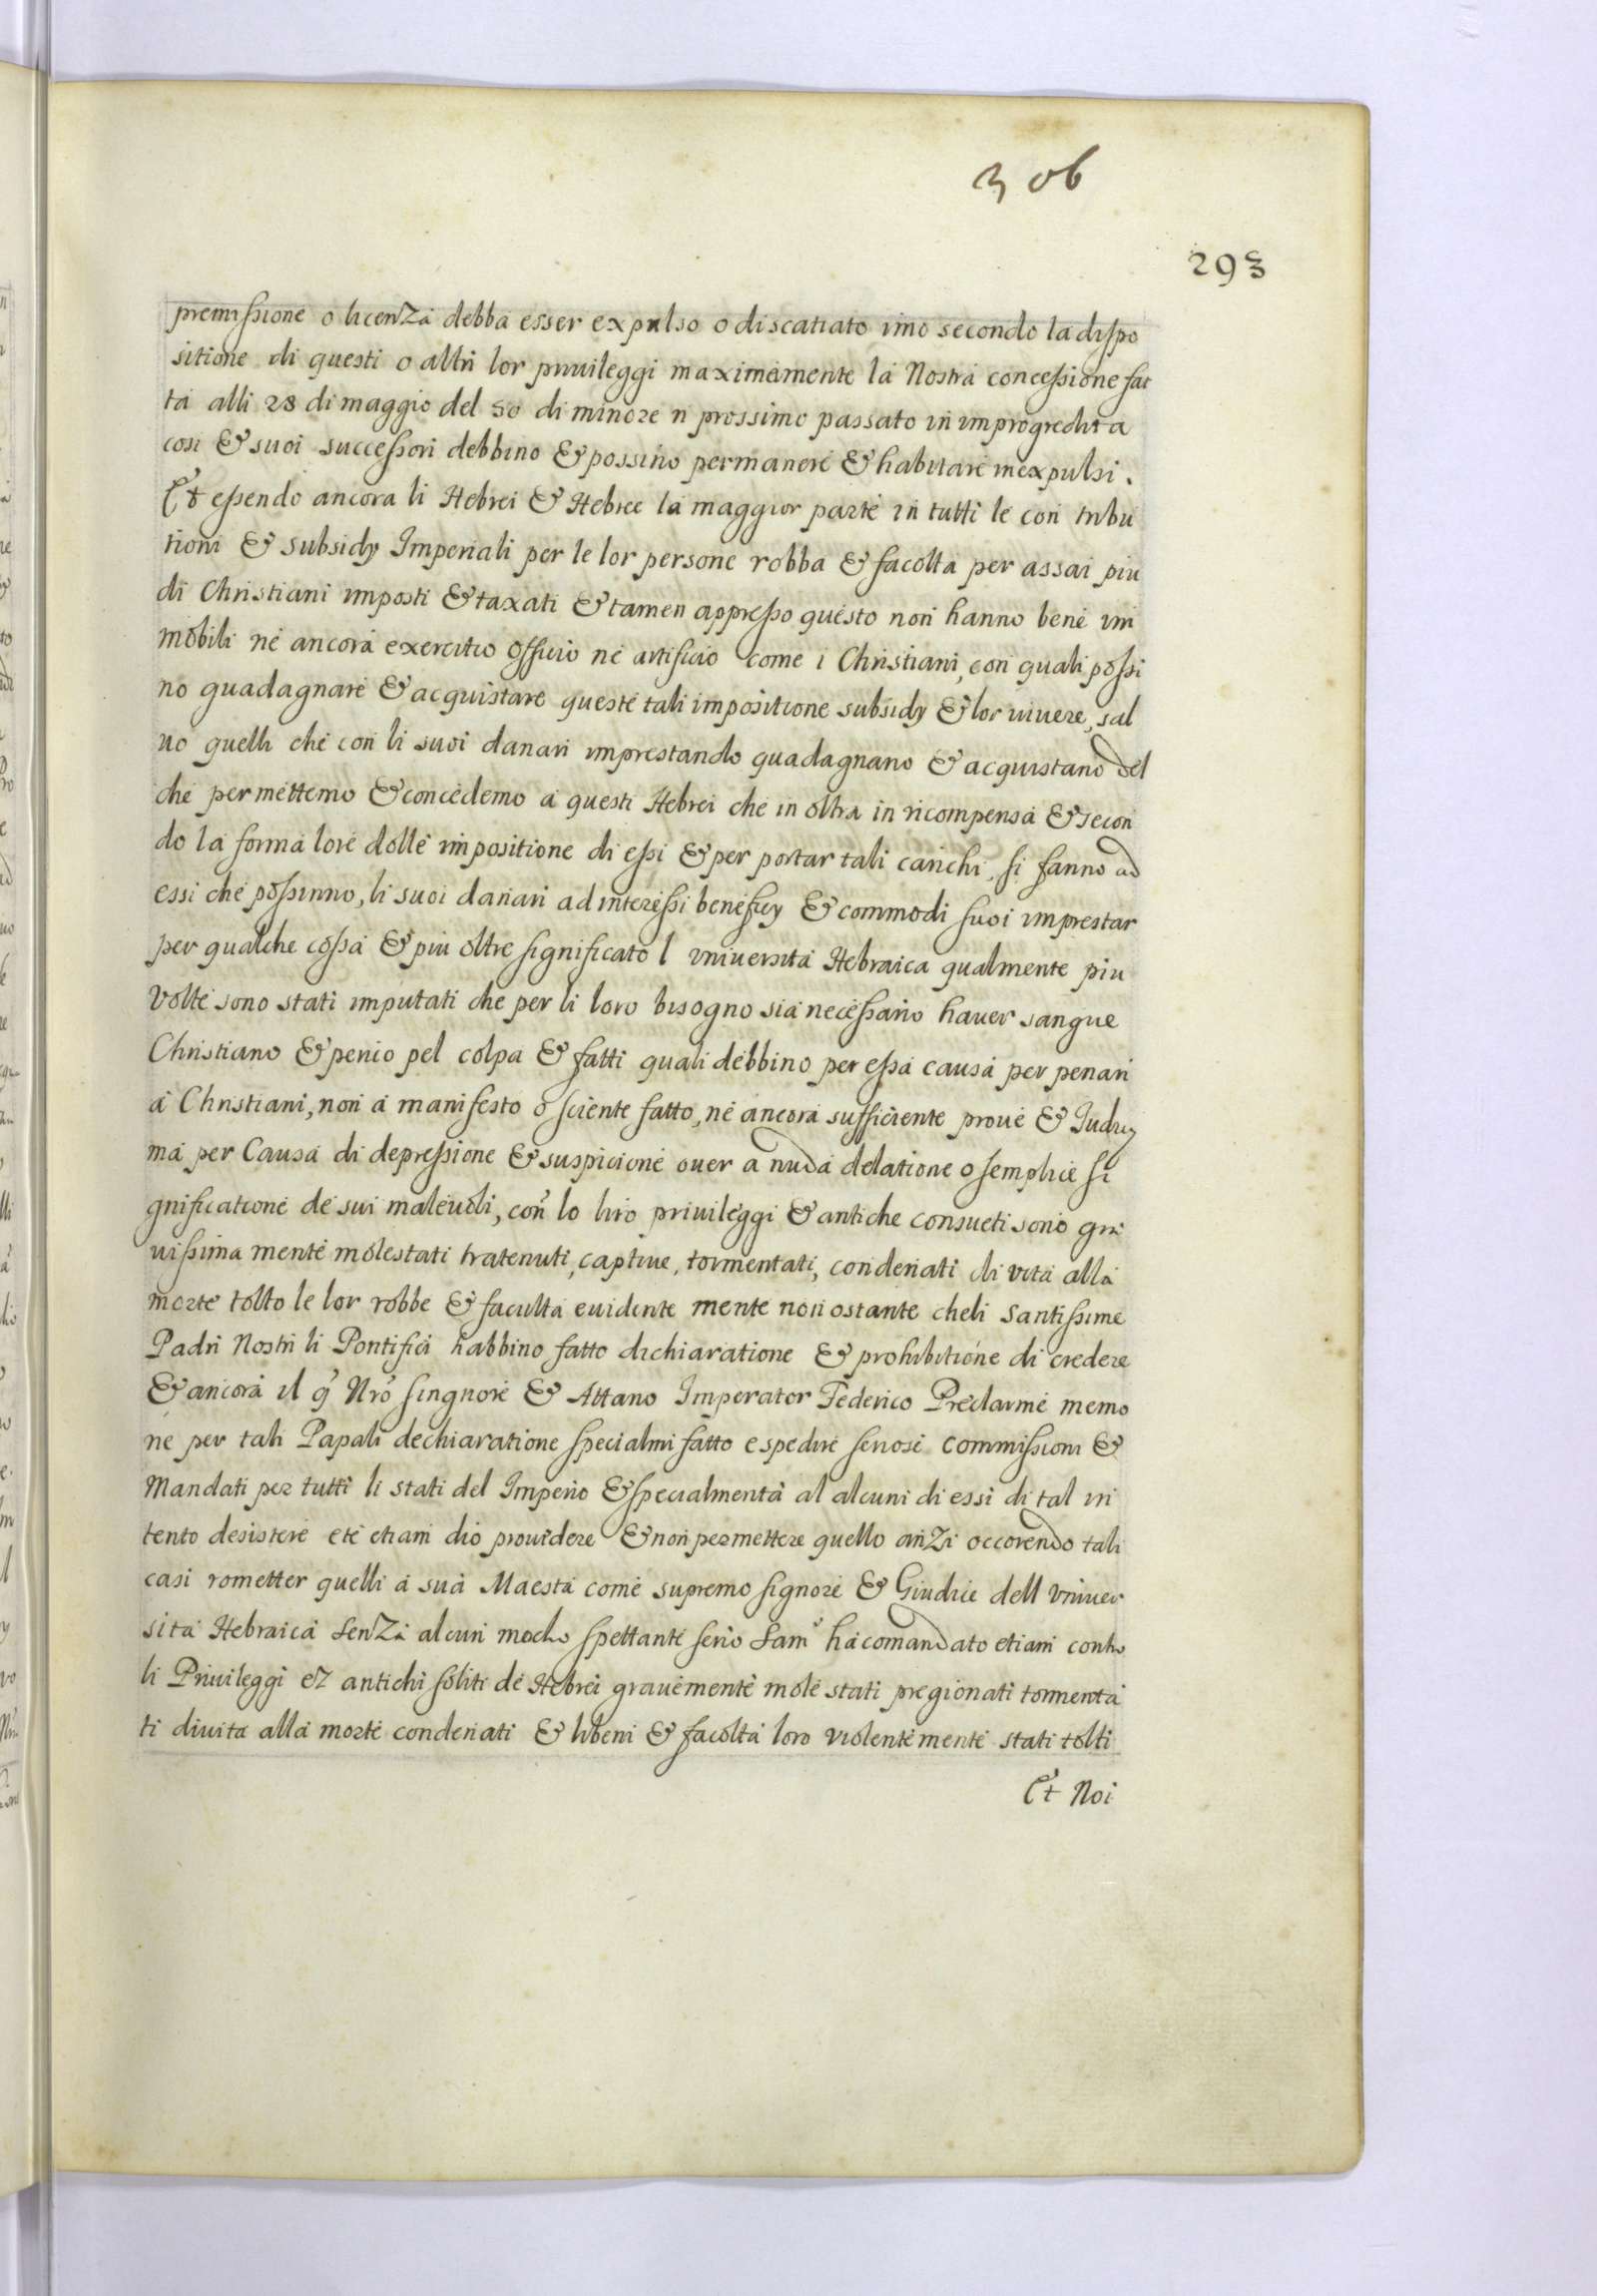 306
293
premissione o licenza debba esser expulso o discatiato imo secondo la dispo
sitione di questi o altri lor priuileggi maximamente la Nostra concessione fat
ta alli 28 di maggio del 50 di minore n prossimo passato in improgredita
cosi & suoi successori debbino & possino permanere & habitare inexpulsi.
Et essendo ancora li Hebrei & Hebree la maggior parte in tutti le con tribu
tioni & subsidy Imperiali per le lor persone robba & facolta per assai piu
di Christiani imposti & taxati & tamen appresso questo non hanno bene im
mobili ne ancora exercitio officio ne artificio come i Christiani, con quali possi
no guadagnare & acquistare queste tali impositione subsidy & lor uiuere, sal
uo quelli che con li suoi danari imprestando guadagnano & acquistano del
che permettemo & concedemo a questi Hebrei che in oltra in ricompensa & secon
do la forma lore dolle impositione di essi & per portar tali carichi, si fanno ad
essi che possinno, li suoi danari ad interessi beneficy & commodi suoi imprestar
per qualche cossa & piu oltre significato l uniuersita Hebraica qualmente piu
volte sono stati imputati che per li loro bisogno sia necessario hauer sangue
Christiano & penio pel colpa & fatti quali debbino per essa causa per penari
a Christiani, non a manifesto o sciente fatto, ne ancora sufficiente proue & Judicy
ma per Causa di depressione & suspicione ouer a nuda delatione o semplice si
gnificatione de sui maleuoli, con lo liro priuileggi & antiche consueti sono gra
uissima mente molestati tratenuti, captiue, tormentati, condenati di vita alla
morte tolto le lor robbe & faculta euidente mente non ostante cheli santissime
Padri Nostri li Pontifici habbino fatto dichiaratione & prohibitione di credere
& ancora il q Nro singnore & Attano Imperator Federico Preclarme memo
rie per tali Papali dechiaratione specialmi fatto espedire seriose commissioni &
Mandati per tutti li stati del Imperio & specialmenta al alcuni di essi di tal in
tento desistere ete etiam dio prouidere & non permettere quello anzi occorendo tali
casi rometter quelli a sua Maesta come supremo signore & Giudice dell vniuer
sita Hebraica senza alcun modo spettante serio sam ha comandato etiam contro
li Priuileggi ez antichi soliti de Hebrei grauemente mole stati pregionati tormenta
ti diuita alla morte condenati & libeni & facolta loro violentemente stati tolti
Et Noi